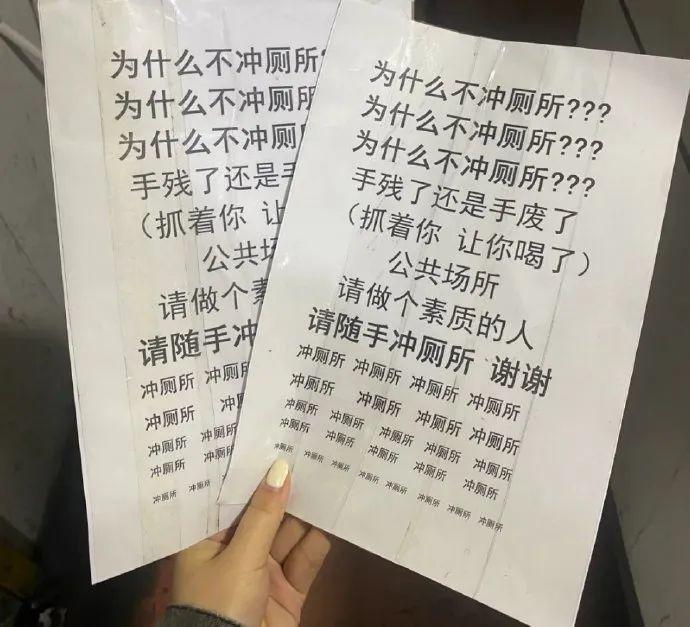 为什么不冲厕所?
为什么不冲厕所
为什么不冲厕
手残了还是手
（抓着你 让
公共场
请做个素
请随手冲厕所
冲厕所 冲厕
冲厕所 冲
冲厕所 冲厕所
冲厕所 冲厕所
冲厕所 冲厕所
为什么不冲厕所???
为什么不冲厕所???
为什么不冲厕所???
手残了还是手废了
（抓着你 让你喝了）
公共场所
请做个素质的人
请随手冲厕所 谢谢
冲厕所 冲厕所 冲厕所 冲厕所
冲厕所 冲厕所 冲厕所 冲厕所
冲厕所 冲厕所 冲厕所 冲厕所 冲厕所
冲厕所 冲厕所 冲厕所 冲厕所 冲厕所
冲厕所 冲厕所 冲厕所 冲厕所 冲厕所 冲厕所 冲厕所 冲厕所